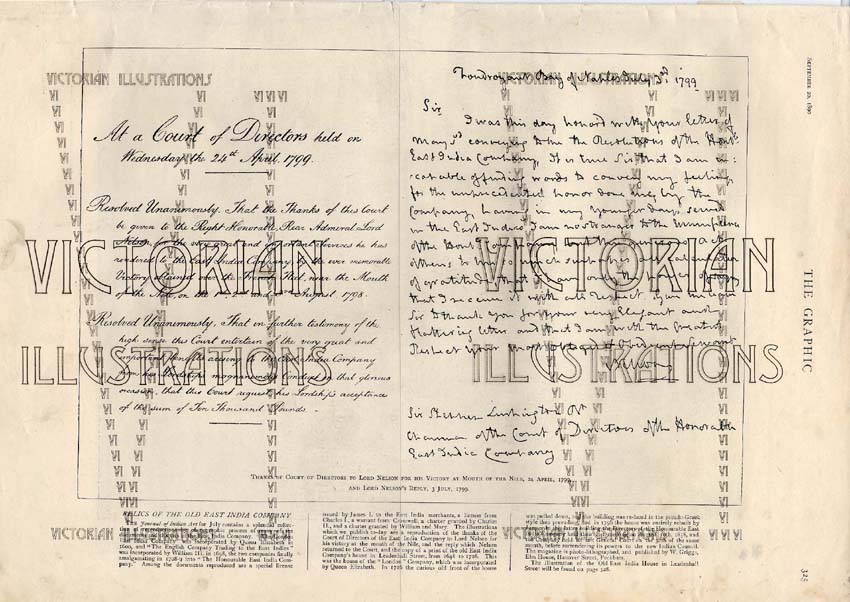 SEPTEMBER 20, 1890
THE GRAPHIC
325
VICTORIAN ILLUSTRATIONS
VICTORIAN
ILLUSTRATIONS
At a Court of Directors held on
Wednesday the 24th April, 1799.
Resolved Unanimously, That the Thanks of this Court
be given to the Right Honorable Rear Admiral Lord
Nelson, for the very great and important Services he has
rendered to the East India Company by the ever memorable
Victory obtained over the French Fleet, near the Mouth
of the Nile, on the August, 1798.
Resolved Unanimously, That in further testimony of the
high sense this Court entertain of the very great and
important benefits accruing to the East India Company
from his Lordship's magnanimous Conduct on that glorious
occasion, that this Court request his Lordship's acceptance
of the sum of Ten Thousand Pounds.
Foudroyant Bay of Naples July 3rd, 1799
Sir,
I was this day honor'd with your letter of
May 3d conveying to me the Resolutions of the Honble
East India Company, It is true Sir that I am in:
:capable of finding words to convey my feelings
for the unprecedented honor done me by the
Company, having in my younger days served
in the East Indies I am no stranger to the munificence
of the Honble
that I receive it with all respect,
Sir to thank you for your very elegant and
flattering letter and that I am with the greatest
Respect your most obliged & Obedient Servant
Nelson
Sir Stephen Lushington Bt
Chairman of the Court of Directors of the Honorable
East India Company
THANKS OF COURT OF DIRECTORS TO LORD NELSON FOR HIS VICTORY AT MOUTH OF THE NILE, 24 APRIL, 1799
AND LORD NELSON'S REPLY, 3 JULY, 1799.
RELICS OF THE OLD EAST INDIA COMPANY
THE Journal of Indian Art for July contains a splendid
India Company.
was incorporated by Queen Elizabeth in
1600, and "The English Company Trading to the East Indies"
was incorporated by William III. in 1698, the two companies finally
amalgamating in 1708-9 into "The Honourable East India Com-
pany." Among the documents reproduced are a special licence
issued by James I. to the East India merchants, a licence from
Charles I., a warrant from Cromwell, a charter granted by Charles
II., and a charter granted by William and Mary. The illustrations
which we publish to-day are a reproduction of the thanks of the
Court of Directors of the East India Company to Lord Nelson for
his victory at the mouth of the Nile, and the reply which Nelson
returned to the Court, and the copy of a print of the old East India
Company's house in Leadenhall Street, from 1648 to 1726. This
was the house of the "London" Company, which was incorporated
by Queen Elizabeth. In 1726 the curious old front of the house
was pulled down, and the building was re-faced in the pseudo-Greek
style then prevailing, and in 1796 the house was entirely rebuilt by
month, before surrendering its powers to the new Indian Council.
The magazine is photo-lithographed, and published by W. Griggs,
Elm House, Hanover Street, Peckham.
The illustration of the Old East India House in Leadenhall
Street will be found on page 328.